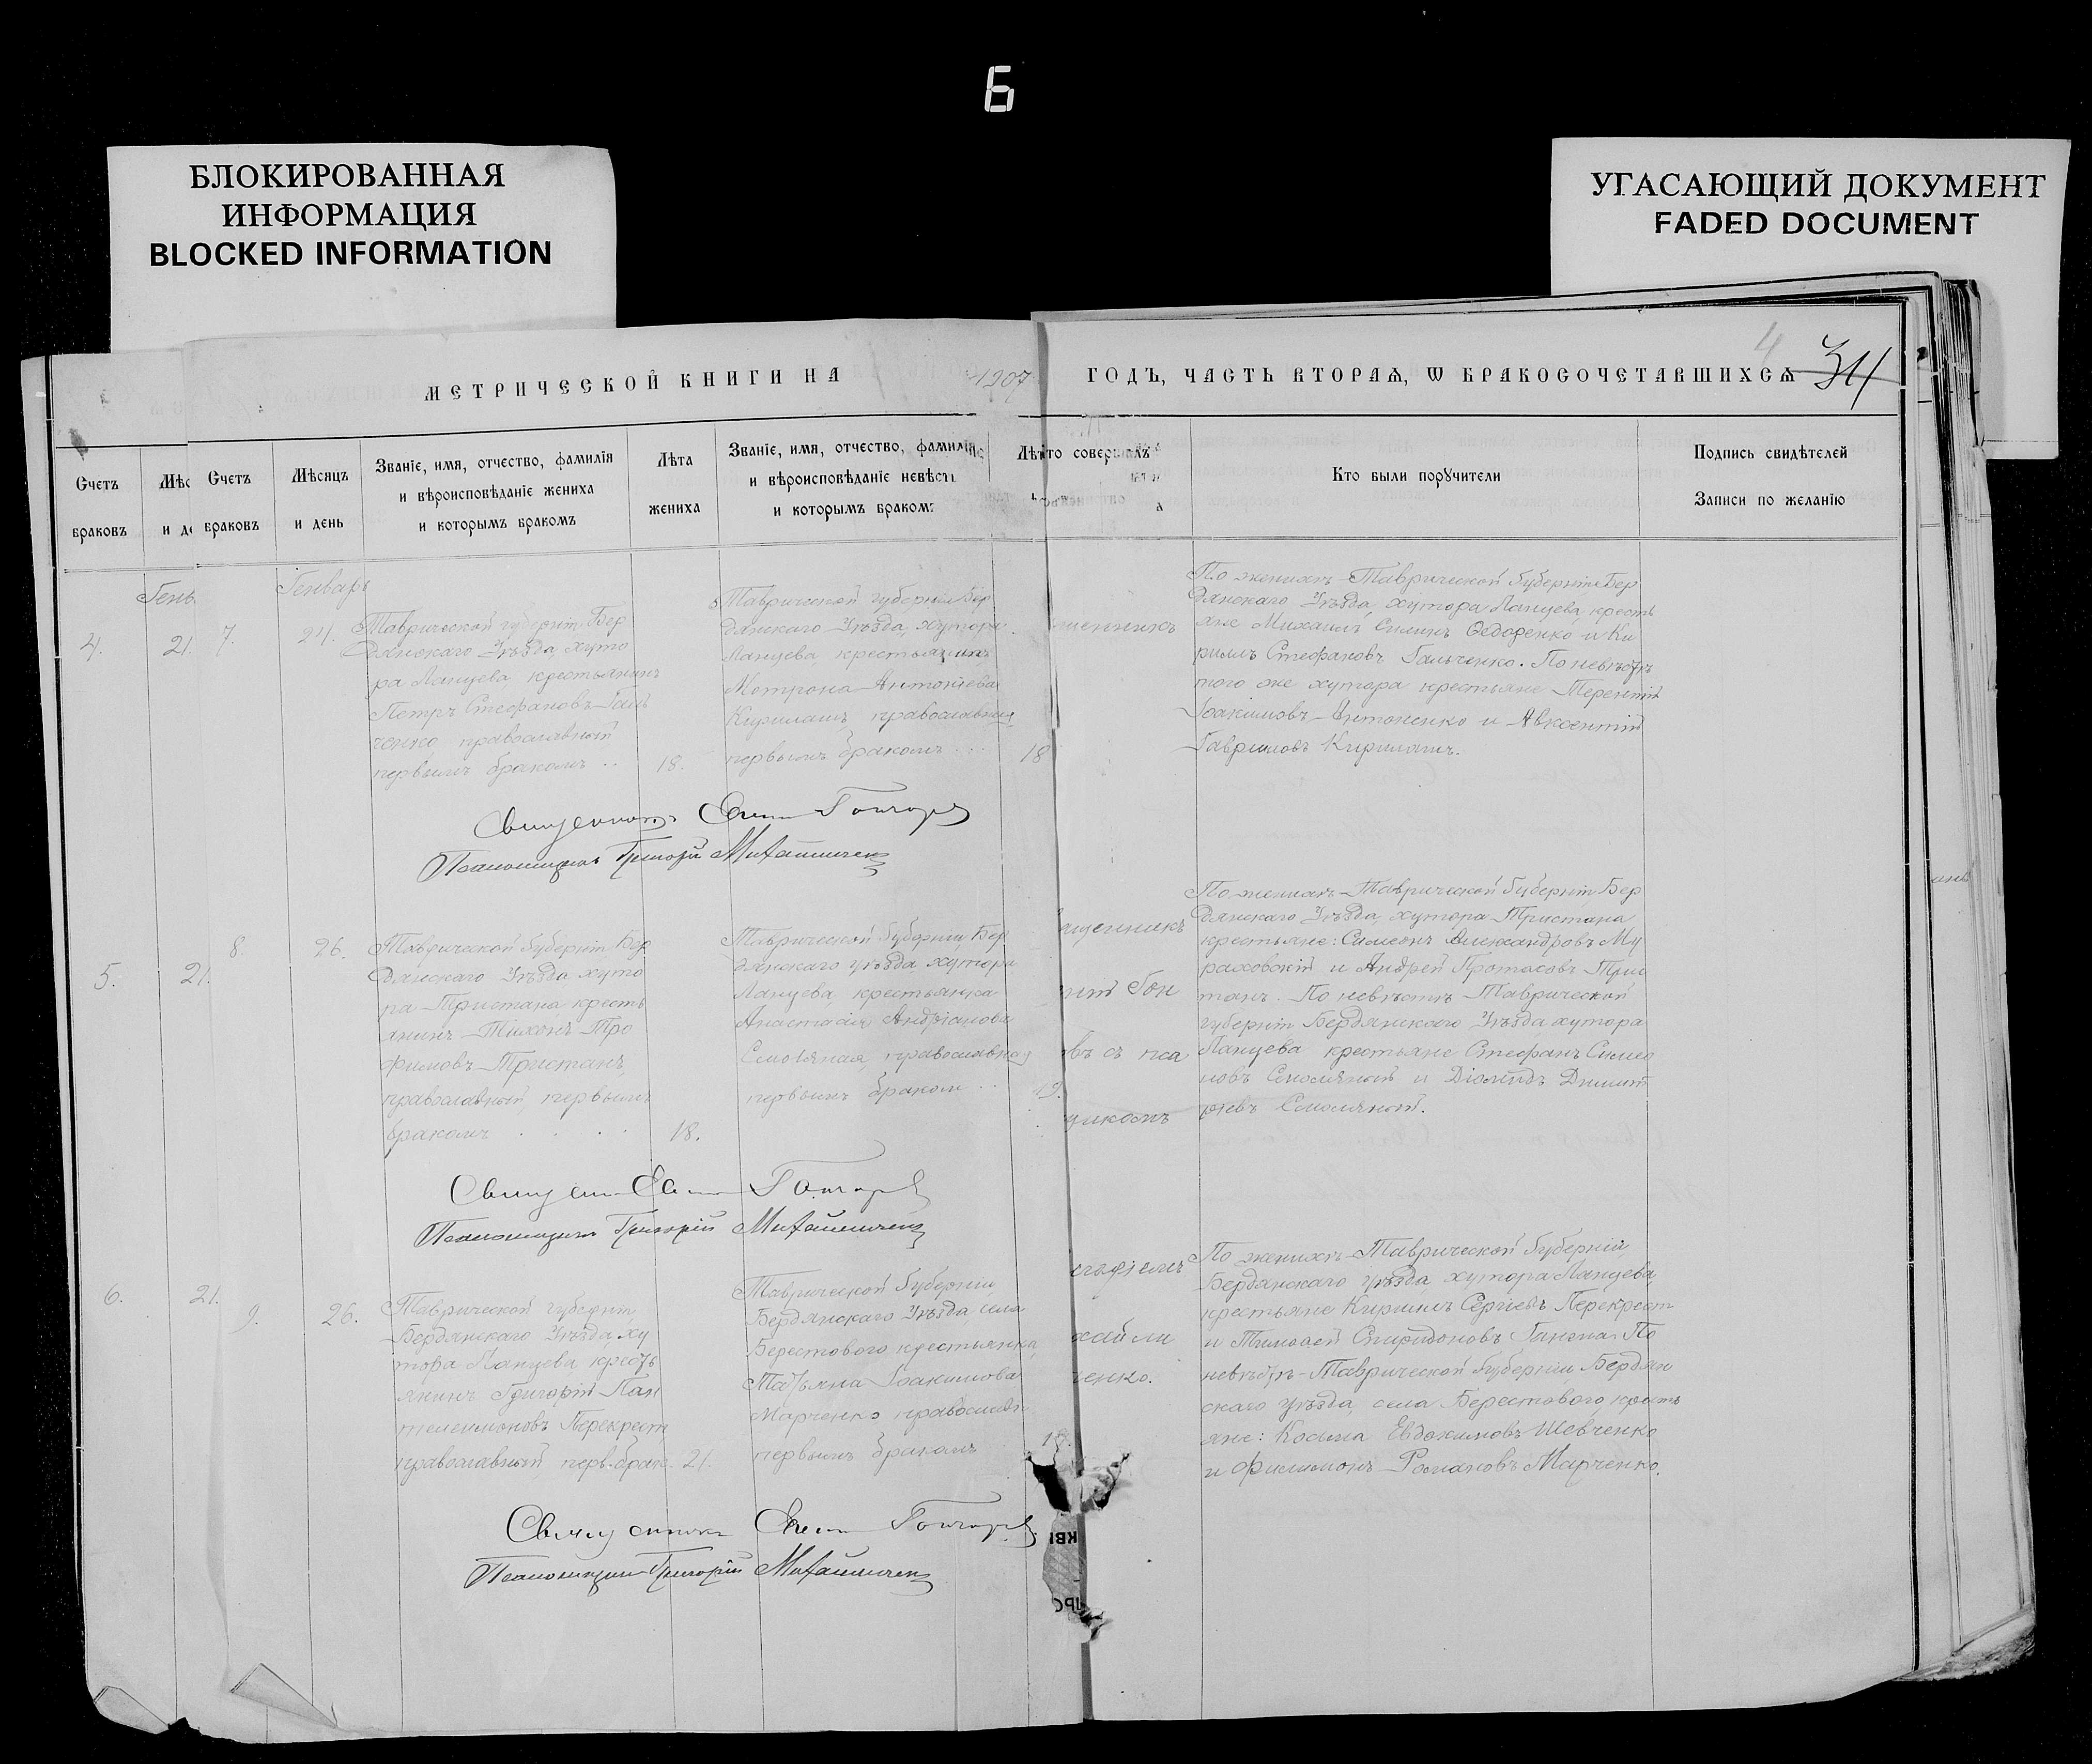 6
БЛОКИРОВАННАЯ
ИНФОРМАЦИЯ
BLOCKED INFORMATION
УГАСАЮЩИЙ ДОКУМЕНТ
FADED DOCUMENT
МЕТРИЧЕСКОЙ КНИГИ НА 1907 ГОДЪ, ЧАСТЬ ВТОРАѦ, Ѡ БРАКОСОЧЕТАВШИХСѦ
4
34
Счетъ
браковъ
Мѣс
и де
Счетъ
браковъ
Мѣсяцъ
и день
Званіе, имя, отчество, фамилія
и вѣроисповѣданіе жениха
и которымъ бракомъ
Лѣта
жениха
Званіе, имя, отчество, фамилія
и вѣроисповѣданіе невѣст
и которымъ браком
Лѣ
то соверш
Кто были порꙋчители
Подпись свидѣтелей
Записи по желанію
Гень
4.
21.
5.
21.
6.
21.
Генварь
7.
24.
Таврической губерніи Бер
дянскаго Уѣзда, хуто
ра Ланцева, крестьянинъ
Петръ Стефановъ Галь
ченко, православный
первымъ бракомъ . .
18.
Таврической губерніи Бер
дянскаго Уѣзда, хутора
Ланцева, крестьянинъ
Мотрона Антоніева
Кирилашъ, православная
первымъ бракомъ . . .
18
щенникъ
По женихѣ Таврической губерніи Бер
дянскаго Уѣзда, хутора Ланцева, кресть
яне Михаилъ Силинъ Ѳедоренко и Ки
риллъ Стефановъ Гальченко. По невѣстѣ
того же хутора крестьяне Терентій
Іоакимовъ Антоненко и Авксентій
Гавриловъ Кирилашъ.
Священникъ Гончаровъ
Псаломщикъ Григорій Михайличенко
8.
26.
Таврической губерніи Бер
дянскаго Уѣзда, хуто
ра Тристана кресть
янинъ Тихонъ Тро
фимовъ Тристанъ,
православный, первымъ
бракомъ . . . .
18.
Таврической губерніи Бер
дянскаго уѣзда, хутора
Ланцева, крестьянка
Анастасія Андріанова
Смоляная, православная
первымъ браком . .
19.
щенникъ
Гон
въ съ пса
щикомъ
По женихѣ Таврической губерніи Бер
дянскаго Уѣзда, хутора Тристана
крестьяне: Симеонъ Александровъ Му
раховскій и Андрей Протасовъ Трис
танъ. По невѣстѣ Таврической
губерніи Бердянскаго Уѣзда хутора
Ланцева крестьяне Стефанъ Симео
новъ Смоляный и Діомидъ Димит
ріевъ Смоляный.
Гончаровъ
Псаломщикъ Григорій Михайличенко
9.
26.
Таврической губерніи
Бердянскаго Уѣзда, ху
тора Ланцева кресть
янинъ Григорій Пан
телеимоновъ Перекрест
православный перв. брак.
21.
Таврической губерніи
Бердянскаго Уѣзда, села
Берестового крестьянка,
Татьяна Іоакимова
Марченко православн
первымъ бракомъ
18.
хайли
ченко.
По женихѣ Таврической губерніи,
Бердянскаго уѣзда, хутора Ланцева,
крестьяне Кириллъ Сергіевъ Перекрест
и Тимоѳей Спиридоновъ По
невѣстѣ Таврической губерніи Бердян
скаго уѣзда, села Берестового, кресть
яне: Косма Евдокимовъ Шевченко
и Филимонъ Романовъ Марченко.
Священникъ Гончаровъ
Псаломщикъ Григорій Михайличенко